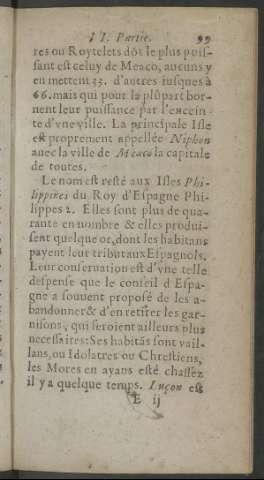 II. Partie. 99
res ou Roytelets dõt le plus puis-
sant est celuy de Meaco, aucuns y
en mettent 53. d'autres iusques à
66. mais qui pour la plûpart bor-
nent leur puissance par l'encein-
te d'vne ville. La principale Isle
est proprement appellée Niphon
auec la ville de Meaco la capitale
de toutes.
Le nom est resté aux Isles Phi-
lippines du Roy d'Espagne Phi-
lippes 2. Elles sont plus de qua-
rante en nombre & elles produi-
sent quelque or, dont les habitans
payent leur tribut aux Espagnols.
Leur conseruation est d'vne telle
despense que le conseil d'Espa-
gne a souuent proposé de les a-
bandonner & d'en retirer les gar-
nisons, qui seroient ailleurs plus
necessaires: Ses habitãs sont vail-
lans, ou Idolatres ou Chrestiens,
les Mores en ayans esté chassez
il y a quelque temps. Luçon est
E ij